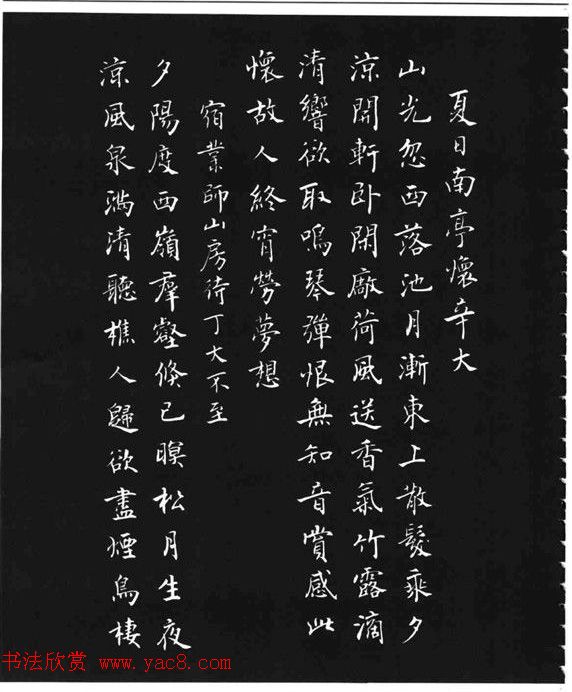 夏日南亭懷辛大
山光忽西落池月漸東上散髮乘夕
涼開軒卧閑廠荷風送香氣竹露滴
清響欲取鳴琴彈恨無知音賞感此
懷故人終宵勞夢想
宿業師山房待丁大不至
夕陽度西嶺群壑倏已暝松月生夜
涼風泉滿清聽樵人歸欲盡煙鳥棲
书法欣赏 www.yac8.com